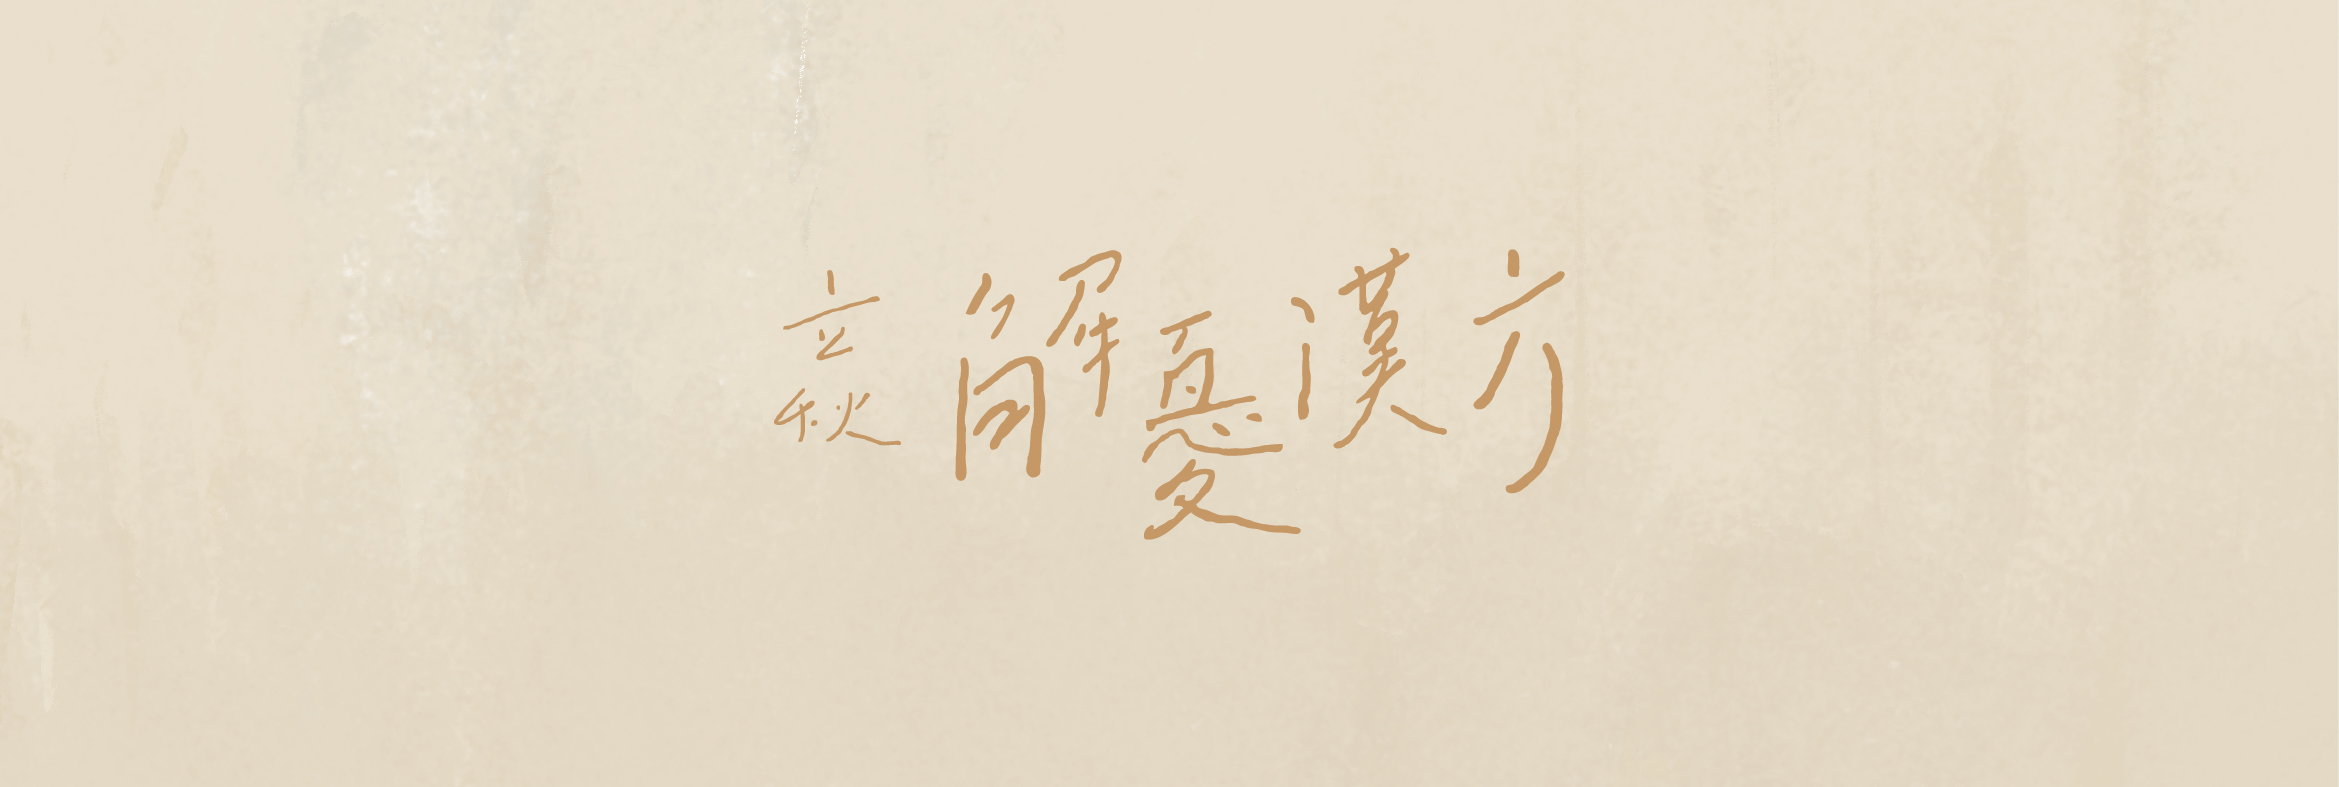 立秋
解憂漢方